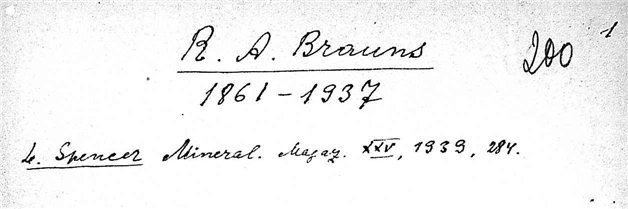 R. A. Brauns
200 1
1861 – 1937
L. Spencer Mineral. Magaz. XXV, 1939, 284.